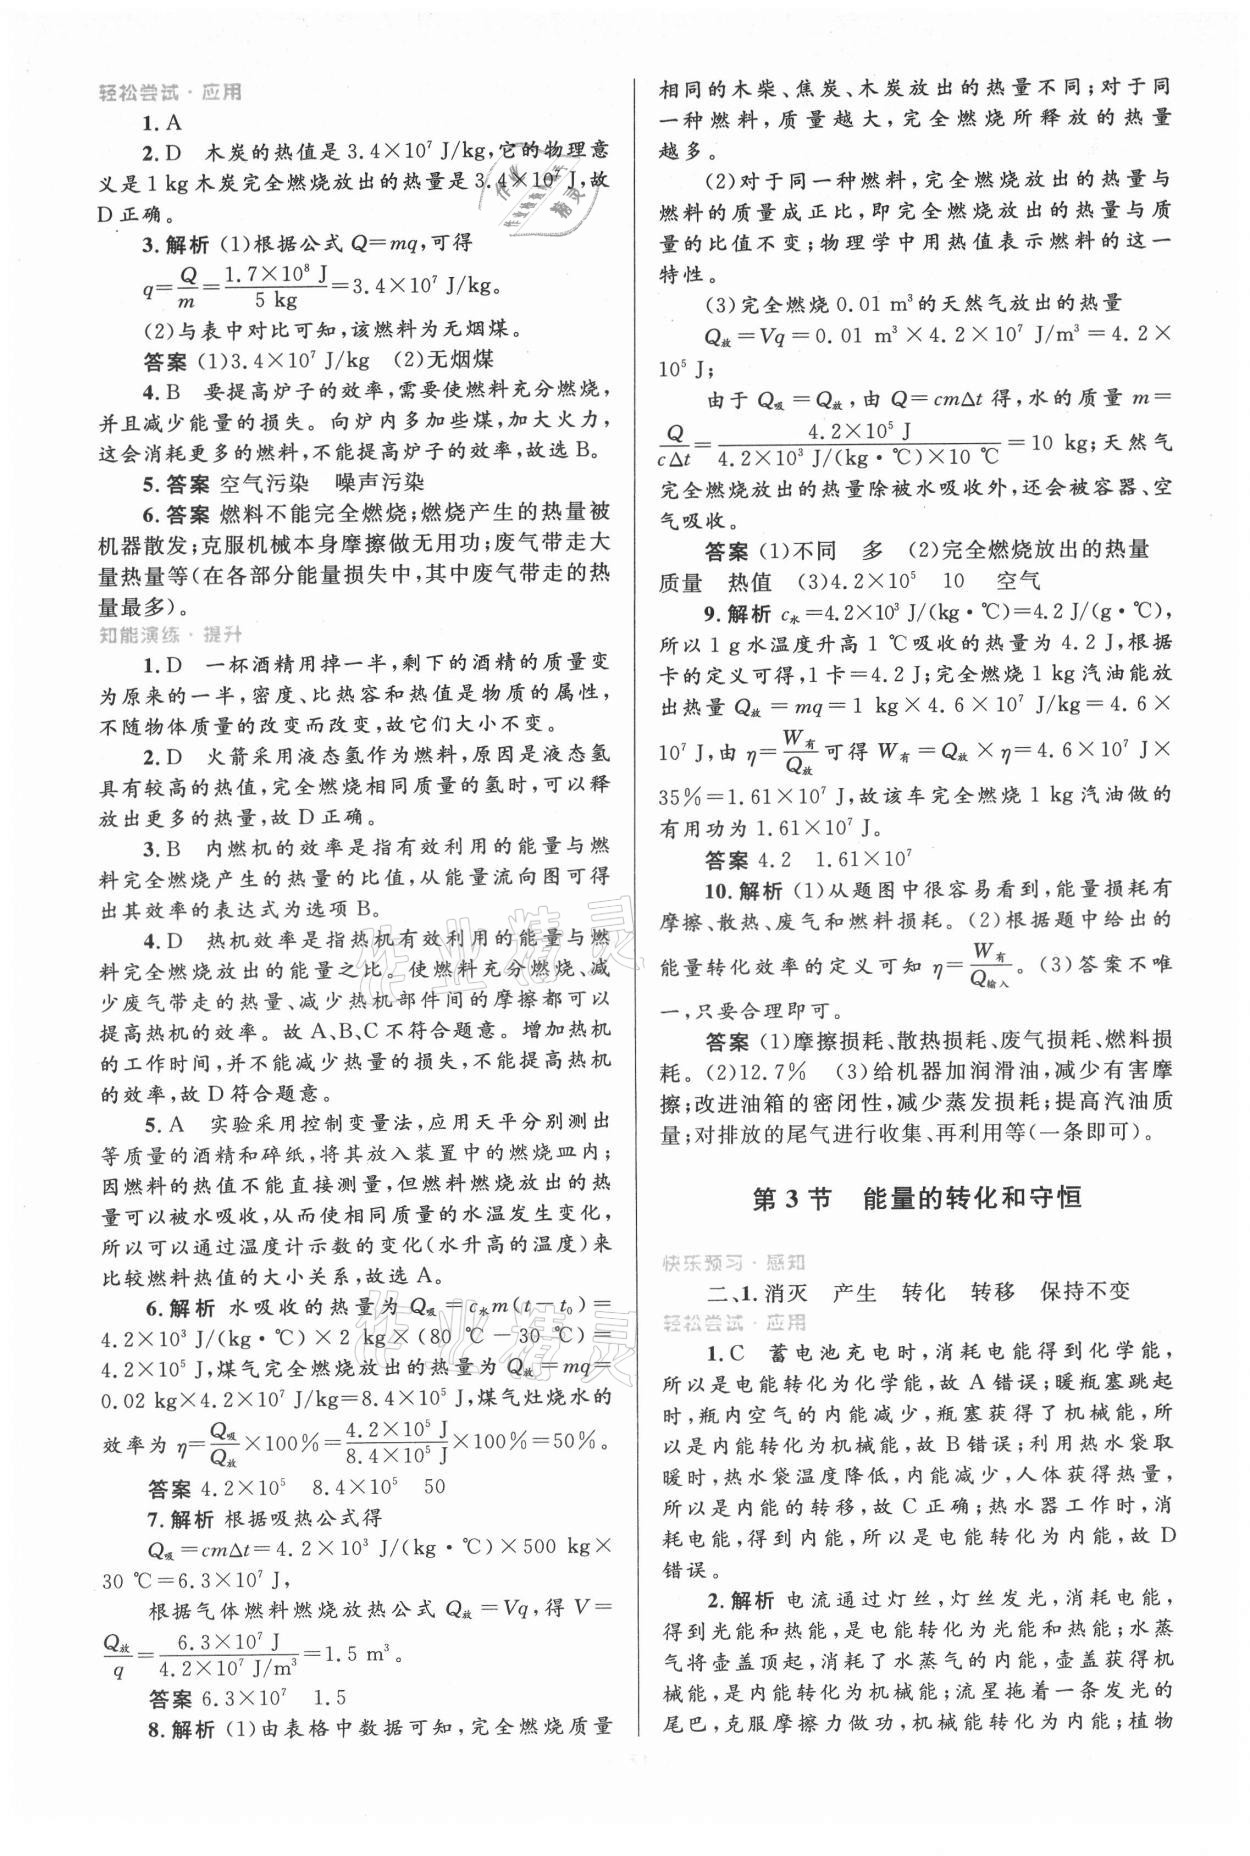 轻松尝试·应用
1. A
2. D 木炭的热值是 3.4×10⁷ J/kg,它的物理意
义是 1 kg 木炭完全燃烧放出的热量是 3.4×10⁷ J,故
D 正确。
3. 解析 (1)根据公式 Q=mq,可得
q=Q/m=1.7×10⁸ J/5 kg=3.4×10⁷ J/kg。
(2)与表中对比可知,该燃料为无烟煤。
答案 (1)3.4×10⁷ J/kg (2)无烟煤
4. B 要提高炉子的效率,需要使燃料充分燃烧,
并且减少能量的损失。向炉内多加些煤,加大火力,
这会消耗更多的燃料,不能提高炉子的效率,故选 B。
5. 答案 空气污染 噪声污染
6. 答案 燃料不能完全燃烧;燃烧产生的热量被
机器散发;克服机械本身摩擦做无用功;废气带走大
量热量等(在各部分能量损失中,其中废气带走的热
量最多)。
知能演练·提升
1. D 一杯酒精用掉一半,剩下的酒精的质量变
为原来的一半,密度、比热容和热值是物质的属性,
不随物体质量的改变而改变,故它们大小不变。
2. D 火箭采用液态氢作为燃料,原因是液态氢
具有较高的热值,完全燃烧相同质量的氢时,可以释
放出更多的热量,故 D 正确。
3. B 内燃机的效率是指有效利用的能量与燃
料完全燃烧产生的热量的比值,从能量流向图可得
出其效率的表达式为选项 B。
4. D 热机效率是指热机有效利用的能量与燃
料完全燃烧放出的能量之比。使燃料充分燃烧、减
少废气带走的热量、减少热机部件间的摩擦都可以
提高热机的效率。故 A、B、C 不符合题意。增加热机
的工作时间,并不能减少热量的损失,不能提高热机
的效率,故 D 符合题意。
5. A 实验采用控制变量法,应用天平分别测出
等质量的酒精和碎纸,将其放入装置中的燃烧皿内;
因燃料的热值不能直接测量,但燃料燃烧放出的热
量可以被水吸收,从而使相同质量的水温发生变化,
所以可以通过温度计示数的变化(水升高的温度)来
比较燃料热值的大小关系,故选 A。
6. 解析 水吸收的热量为 Q吸=c水m(t-t₀)=
4.2×10³ J/(kg·℃)×2 kg×(80 ℃-30 ℃)=
4.2×10⁵ J,煤气完全燃烧放出的热量为 Q放=mq=
0.02 kg×4.2×10⁷ J/kg=8.4×10⁵ J,煤气灶烧水的
效率为 η=Q吸/Q放×100%=4.2×10⁵ J/8.4×10⁵ J×100%=50%。
答案 4.2×10⁵ 8.4×10⁵ 50
7. 解析 根据吸热公式得
Q吸=cmΔt=4.2×10³ J/(kg·℃)×500 kg×
30 ℃=6.3×10⁷ J,
根据气体燃料燃烧放热公式 Q放=Vq,得 V=
Q放/q=6.3×10⁷ J/4.2×10⁷ J/m³=1.5 m³。
答案 6.3×10⁷ 1.5
8. 解析 (1)由表格中数据可知,完全燃烧质量
相同的木柴、焦炭、木炭放出的热量不同;对于同
一种燃料,质量越大,完全燃烧所释放的热量
越多。
(2)对于同一种燃料,完全燃烧放出的热量与
燃料的质量成正比,即完全燃烧放出的热量与质
量的比值不变;物理学中用热值表示燃料的这一
特性。
(3)完全燃烧 0.01 m³的天然气放出的热量
Q放=Vq=0.01 m³×4.2×10⁷ J/m³=4.2×
10⁵ J;
由于 Q吸=Q放,由 Q=cmΔt 得,水的质量 m=
Q/cΔt=4.2×10⁵ J/4.2×10³ J/(kg·℃)×10 ℃=10 kg;天然气
完全燃烧放出的热量除被水吸收外,还会被容器、空
气吸收。
答案 (1)不同 多 (2)完全燃烧放出的热量
质量 热值 (3)4.2×10⁵ 10 空气
9. 解析 c水=4.2×10³ J/(kg·℃)=4.2 J/(g·℃),
所以 1 g 水温度升高 1 ℃吸收的热量为 4.2 J,根据
卡的定义可得,1 卡=4.2 J;完全燃烧 1 kg 汽油能放
出热量 Q放=mq=1 kg×4.6×10⁷ J/kg=4.6×
10⁷ J,由 η=W有/Q放可得 W有=Q放×η=4.6×10⁷ J×
35%=1.61×10⁷ J,故该车完全燃烧 1 kg 汽油做的
有用功为 1.61×10⁷ J。
答案 4.2 1.61×10⁷
10. 解析 (1)从题图中很容易看到,能量损耗有
摩擦、散热、废气和燃料损耗。(2)根据题中给出的
能量转化效率的定义可知 η=W有/Q输入。(3)答案不唯
一,只要合理即可。
答案 (1)摩擦损耗、散热损耗、废气损耗、燃料损
耗。(2)12.7% (3)给机器加润滑油,减少有害摩
擦;改进油箱的密闭性,减少蒸发损耗;提高汽油质
量;对排放的尾气进行收集、再利用等(一条即可)。
第 3 节 能量的转化和守恒
快乐预习·感知
二、1. 消灭 产生 转化 转移 保持不变
轻松尝试·应用
1. C 蓄电池充电时,消耗电能得到化学能,
所以是电能转化为化学能,故 A 错误;暖瓶塞跳起
时,瓶内空气的内能减少,瓶塞获得了机械能,所
以是内能转化为机械能,故 B 错误;利用热水袋取
暖时,热水袋温度降低,内能减少,人体获得热量,
所以是内能的转移,故 C 正确;热水器工作时,消
耗电能,得到内能,所以是电能转化为内能,故 D
错误。
2. 解析 电流通过灯丝,灯丝发光,消耗电能,
得到光能和热能,是电能转化为光能和热能;水蒸
气将壶盖顶起,消耗了水蒸气的内能,壶盖获得机
械能,是内能转化为机械能;流星拖着一条发光的
尾巴,克服摩擦力做功,机械能转化为内能;植物
作业精灵
作业精灵